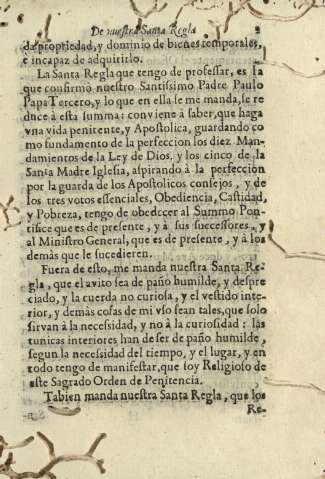 De nuestra Santa Regla 2
da propiedad, y dominio de bienes temporales,
e incapaz de adquirirlo.
La Santa Regla que tengo de professar, es la
que confirmò nuestro Santissimo Padre Paulo
Papa Tercero, y lo que en ella se me manda, se re
duce à esta summa: conviene à saber, que haga
vna vida penitente, y Apostolica, guardando co
mo fundamento de la perfeccion los diez Man-
damientos de la Ley de Dios, y los cinco de la
Santa Madre Iglesia, aspirando à la perfeccion
por la guarda de los Apostolicos consejos, y de
los tres votos essenciales, Obediencia, Castidad,
y Pobreza, tengo de obedecer al Summo Pon-
tifice que es de presente, y à sus successores, y
al Ministro General, que es de presente, y à los
demàs que le sucedieren.
Fuera de esto, me manda nuestra Santa Re-
gla, que el avito sea de paño humilde, y despre
ciado, y la cuerda no curiosa, y el vestido inte-
rior, y demàs cosas de mi vso sean tales, que solo
sirvan à la necessidad, y no à la curiosidad: las
tunicas interiores han de ser de paño humilde,
segun la necessidad del tiempo, y el lugar, y en
todo tengo de manifestar, que soy Religioso de
este Sagrado Orden de Penitencia.
Tabien manda nuestra Santa Regla, que los
Re-